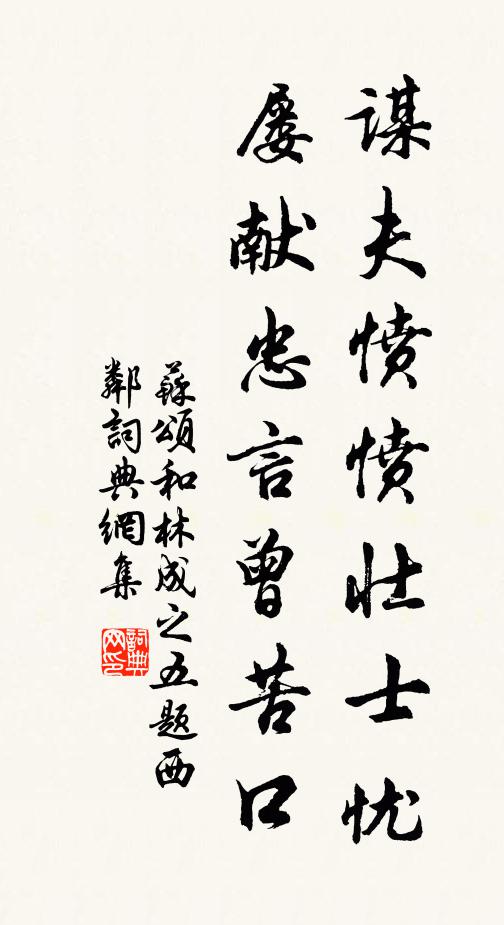 謀夫愦愦壮士忧
屡献忠言曾苦口
蘇頌和林成之五题西
鄰詞典網集
詞典网印